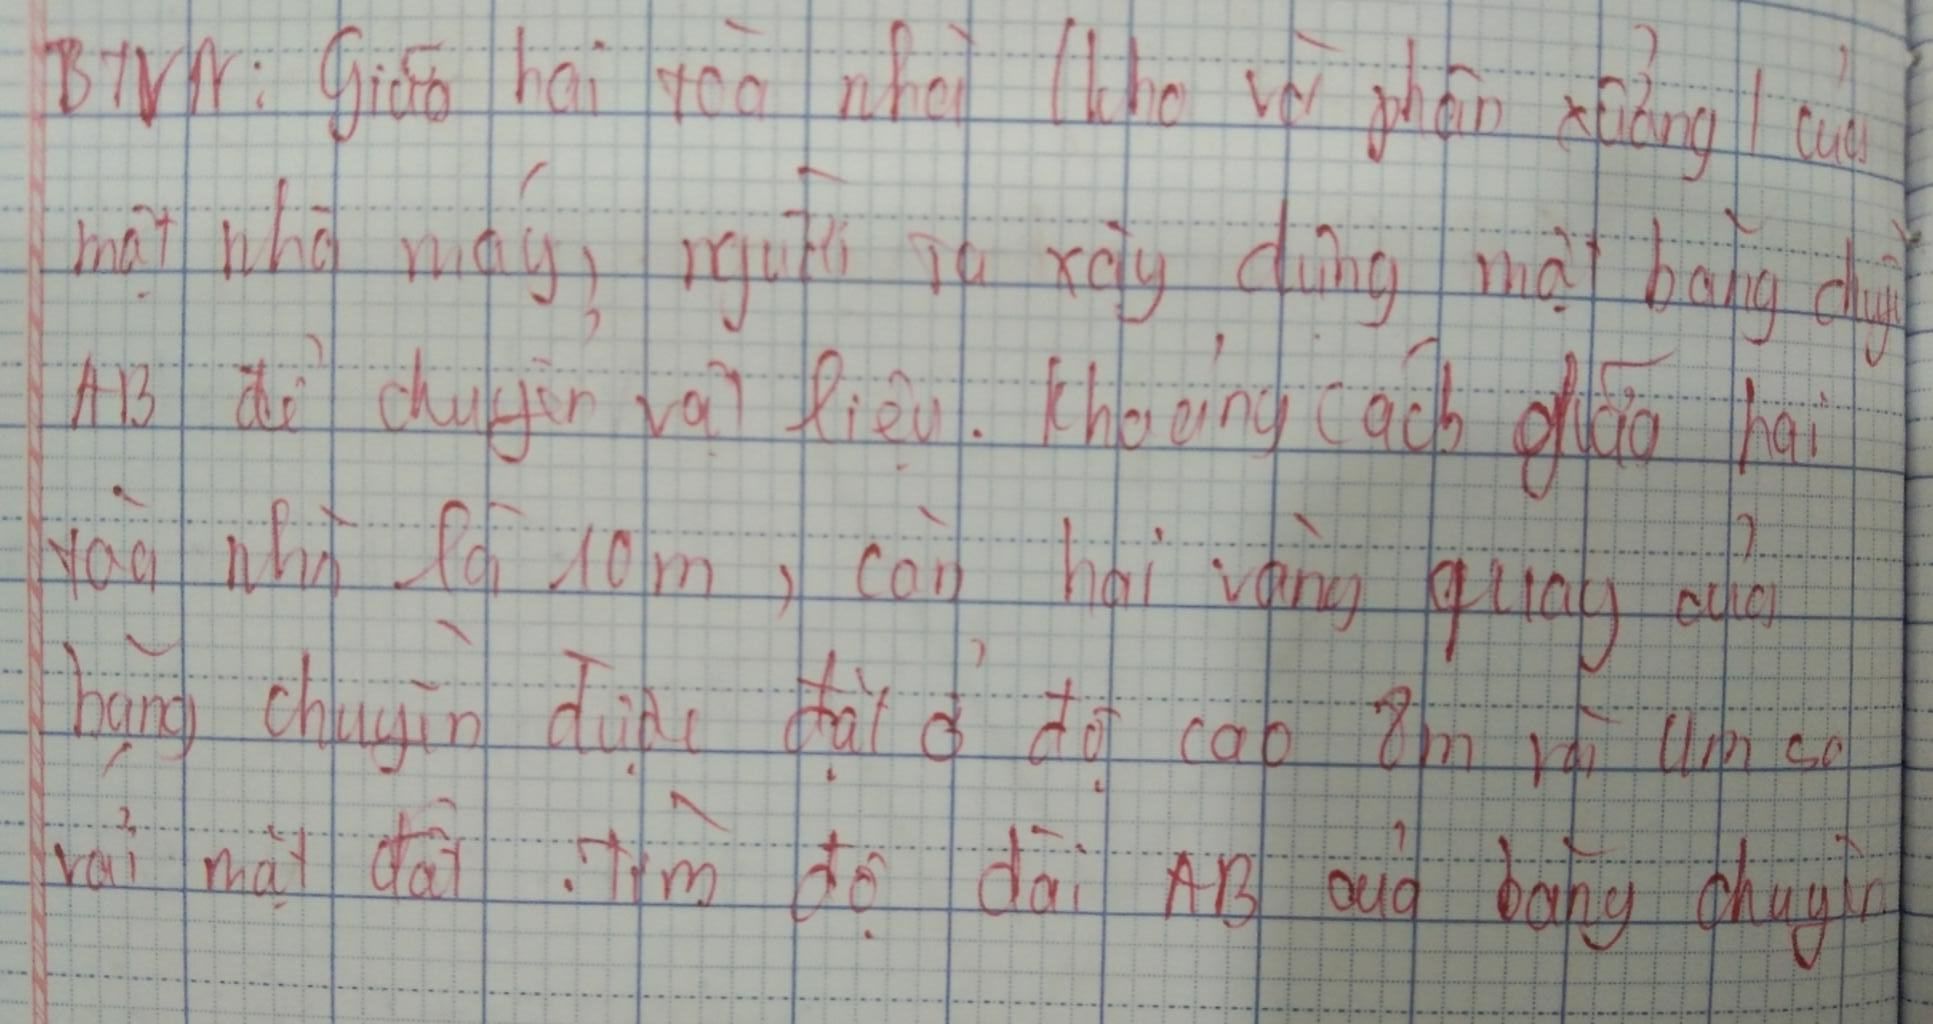 BTVN: Giữa hai toà nhà (kho và phân xưởng) của
một nhà máy, người ta xây dựng một băng chuyền
AB để chuyển vật liệu. Khoảng cách giữa hai
toà nhà là 10m, còn hai vòng quay của
băng chuyền được đặt ở độ cao 8m và 4m so
với mặt đất. Tìm độ dài AB của băng chuyền